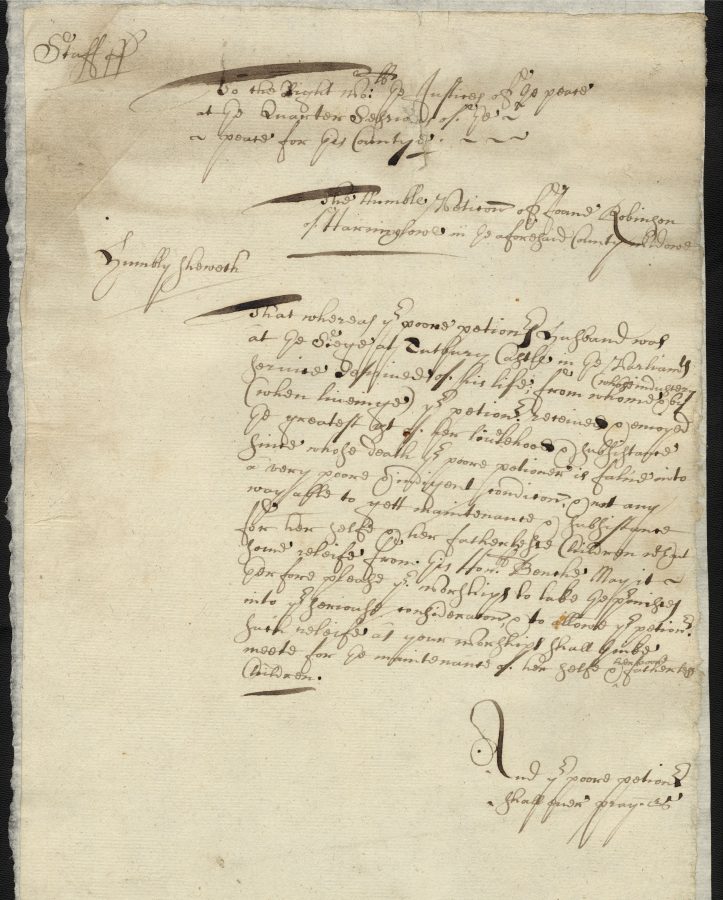 Staff ss
To the Right wo:ll ye Justices of ye peace
at ye Quarter Sessions of ye
peace for this Countye.
The Humble Peticon of Joane Robinson
of Harringlowe in ye aforesaid County widdowe
Humbly sheweth
That whereas yr poore petionrs Husband was
at ye Seige at Tutbury Castle in ye Parliamts
service deprived of his life from whome & by
(whose industry
(when liveinge) yr petionr received & enioyed
ye greatest pt of her livelehood & subsistance
since whose death yr poore petioner is falne into
a very poore & indigent condicon, & not any
way able to gett maintenance & subsistance
for her selfe & her fatherlesse Children wthout
some releife from this Honble Benche May it
therfore please yr worshipps to take the prmisses
into yr seriouse consideracon & to allowe yr petionr
such releife as your worshipps shall thinke
meete for ye maintenance of her selfe & fatherless
her poore
Children.
And yr poore petionr
shall ever pray. &c